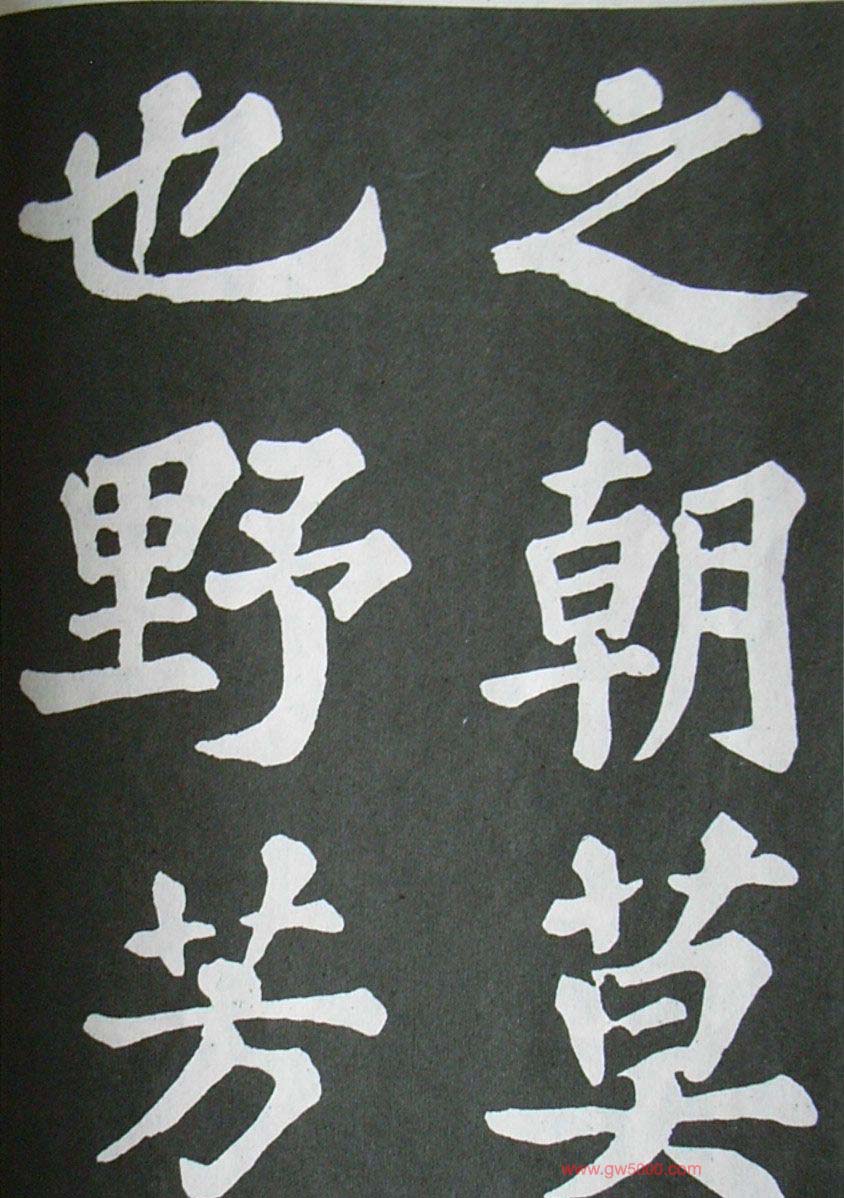 之朝莫
也野芳
www.gw5000.com